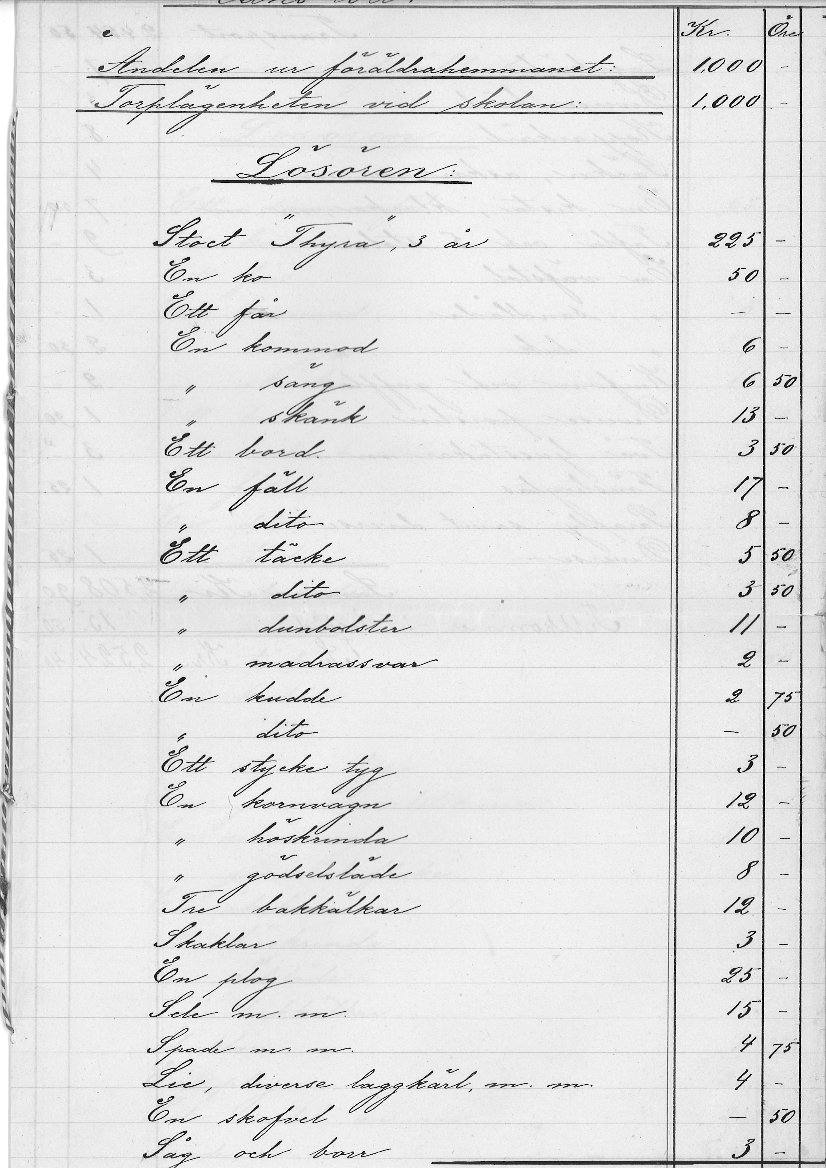 Kr. Öre
Andelen ur föräldrahemmanet: 1,000 -
Torplägenheten vid skolan: 1,000 -
Lösören:
Stoet "Thyra", 3 år 225 -
En ko 50 -
Ett får - -
En kommod 6 -
" säng 6 50
" skänk 13 -
Ett bord. 3 50
En fäll 17 -
" dito 8 -
Ett täcke 5 50
" dito 3 50
" dunbolster 11 -
" madrassvar 2 -
En kudde 2 75
" dito - 50
Ett stycke tyg 3 -
En kornvagn 12 -
" höskrinda 10 -
" gödselsläde 8 -
Tre bakkälkar 12 -
Skaklar 3 -
En plog 25 -
Sele m. m. 15 -
Spade m. m. 4 75
Lie, diverse laggkärl, m. m. 4 -
En skofvel - 50
Såg och borr 3 -